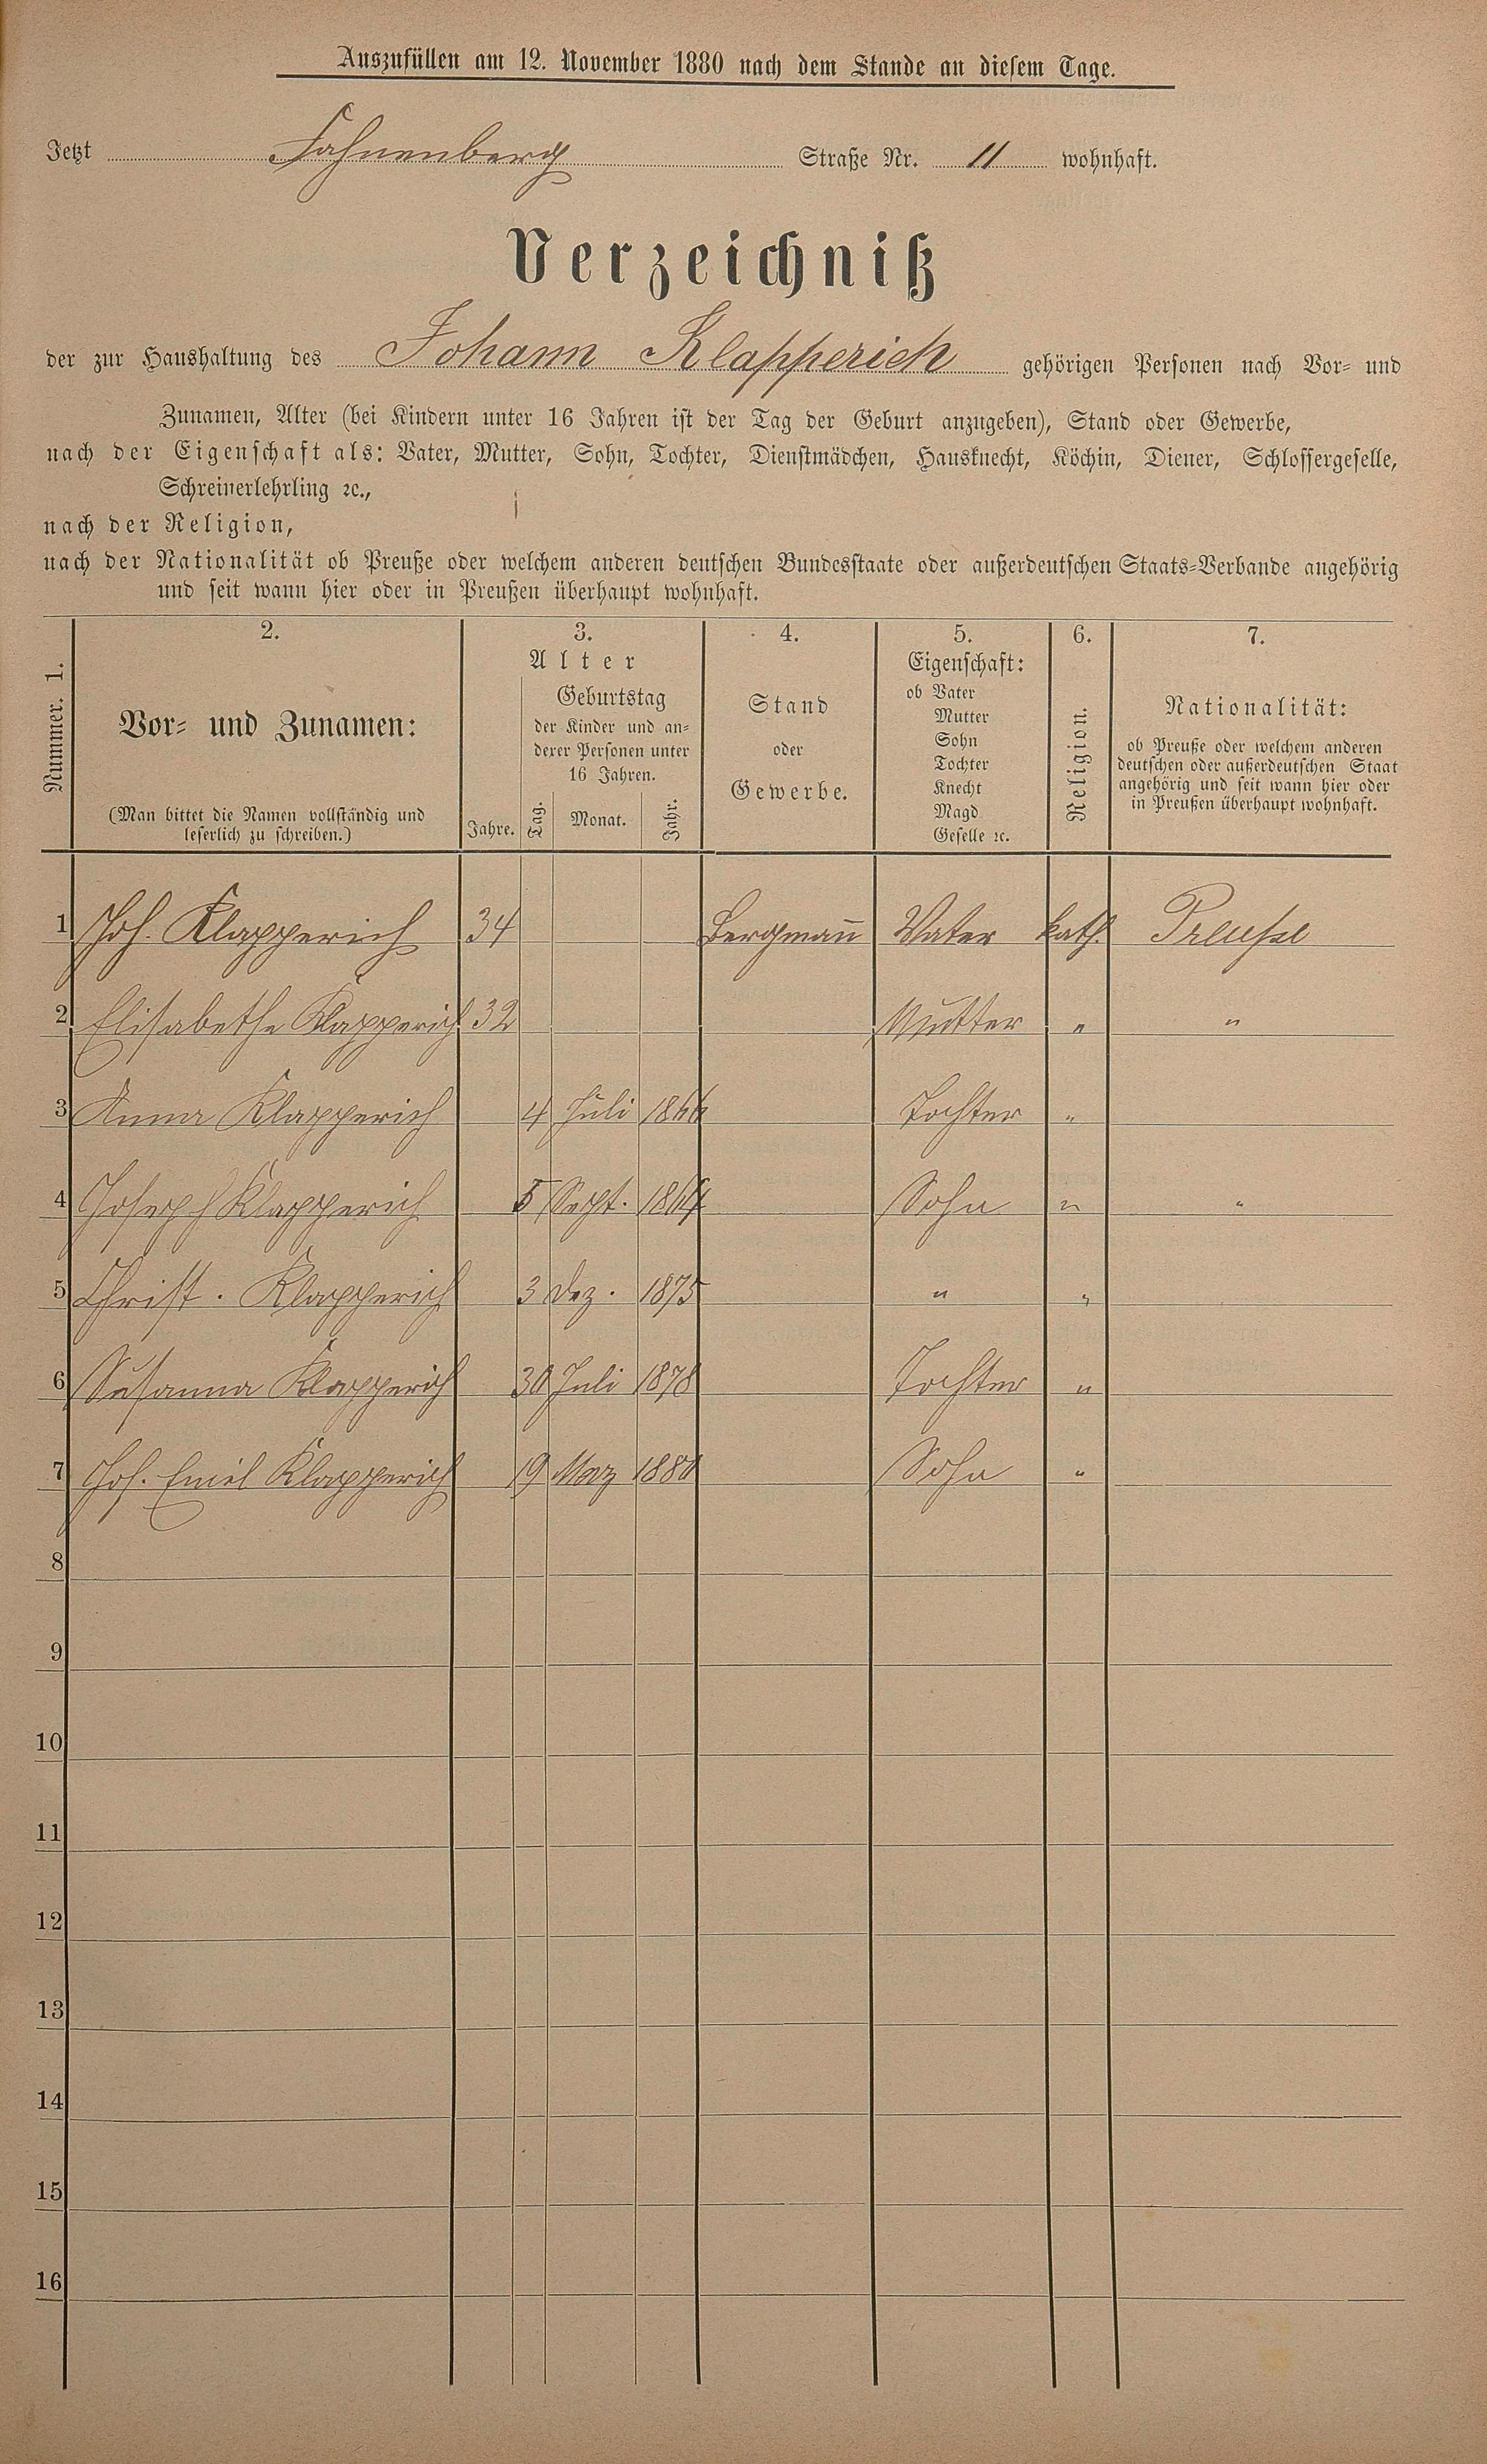 Auszufüllen am 12. November 1880 nach dem Stande an diesem Tage.
Jetzt Fahnenberg Straße Nr. 11 wohnhaft.
Verzeichniß
der zur Haushaltung des Johann Klapperich gehörigen Personen nach Vor- und
Zunamen, Alter (bei Kindern unter 16 Jahren ist der Tag der Geburt anzugeben), Stand oder Gewerbe,
nach der Eigenschaft als: Vater, Mutter, Sohn, Tochter, Dienstmädchen, Hausknecht, Köchin, Diener, Schlossergeselle,
Schreinerlehrling ꝛc.,
nach der Religion,
nach der Nationalität ob Preuße oder welchem anderen deutschen Bundesstaate oder außerdeutschen Staats-Verbande angehörig
und seit wann hier oder in Preußen überhaupt wohnhaft.
Nummer. 1.
2.
Vor- und Zunamen:
(Man bittet die Namen vollständig und
leserlich zu schreiben.)
3.
Alter
Jahre.
Geburtstag
der Kinder und an-
derer Personen unter
16 Jahren.
Tag. Monat. Jahr.
4.
Stand
oder
Gewerbe.
5.
Eigenschaft:
ob Vater
Mutter
Sohn
Tochter
Knecht
Magd
Geselle ꝛc.
6.
Religion.
7.
Nationalität:
ob Preuße oder welchem anderen
deutschen oder außerdeutschen Staat
angehörig und seit wann hier oder
in Preußen überhaupt wohnhaft.
1 Joh. Klapperich 34 Bergmann̄ Vater kath. Preuße
2 Elisabetha Klapperich 32 Mutter " "
3 Anna Klapperich 4 Juli Tochter "
4 Joseph Klapperich 5 Sept. Sohn " "
5 Christ. Klapperich 3 Dez. 1875 " "
6 Susanna Klapperich 30 Juli 1878 Tochter "
7 Joh. Emil Klapperich 19 März 1880 Sohn "
8
9
10
11
12
13
14
15
16